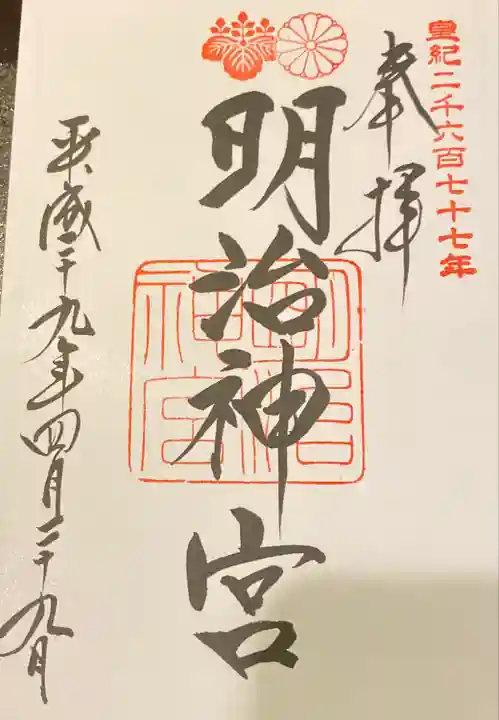 皇紀二千六百七十七年
奉拝
明治神宮
明治神宮
平成二十九年四月二十九日